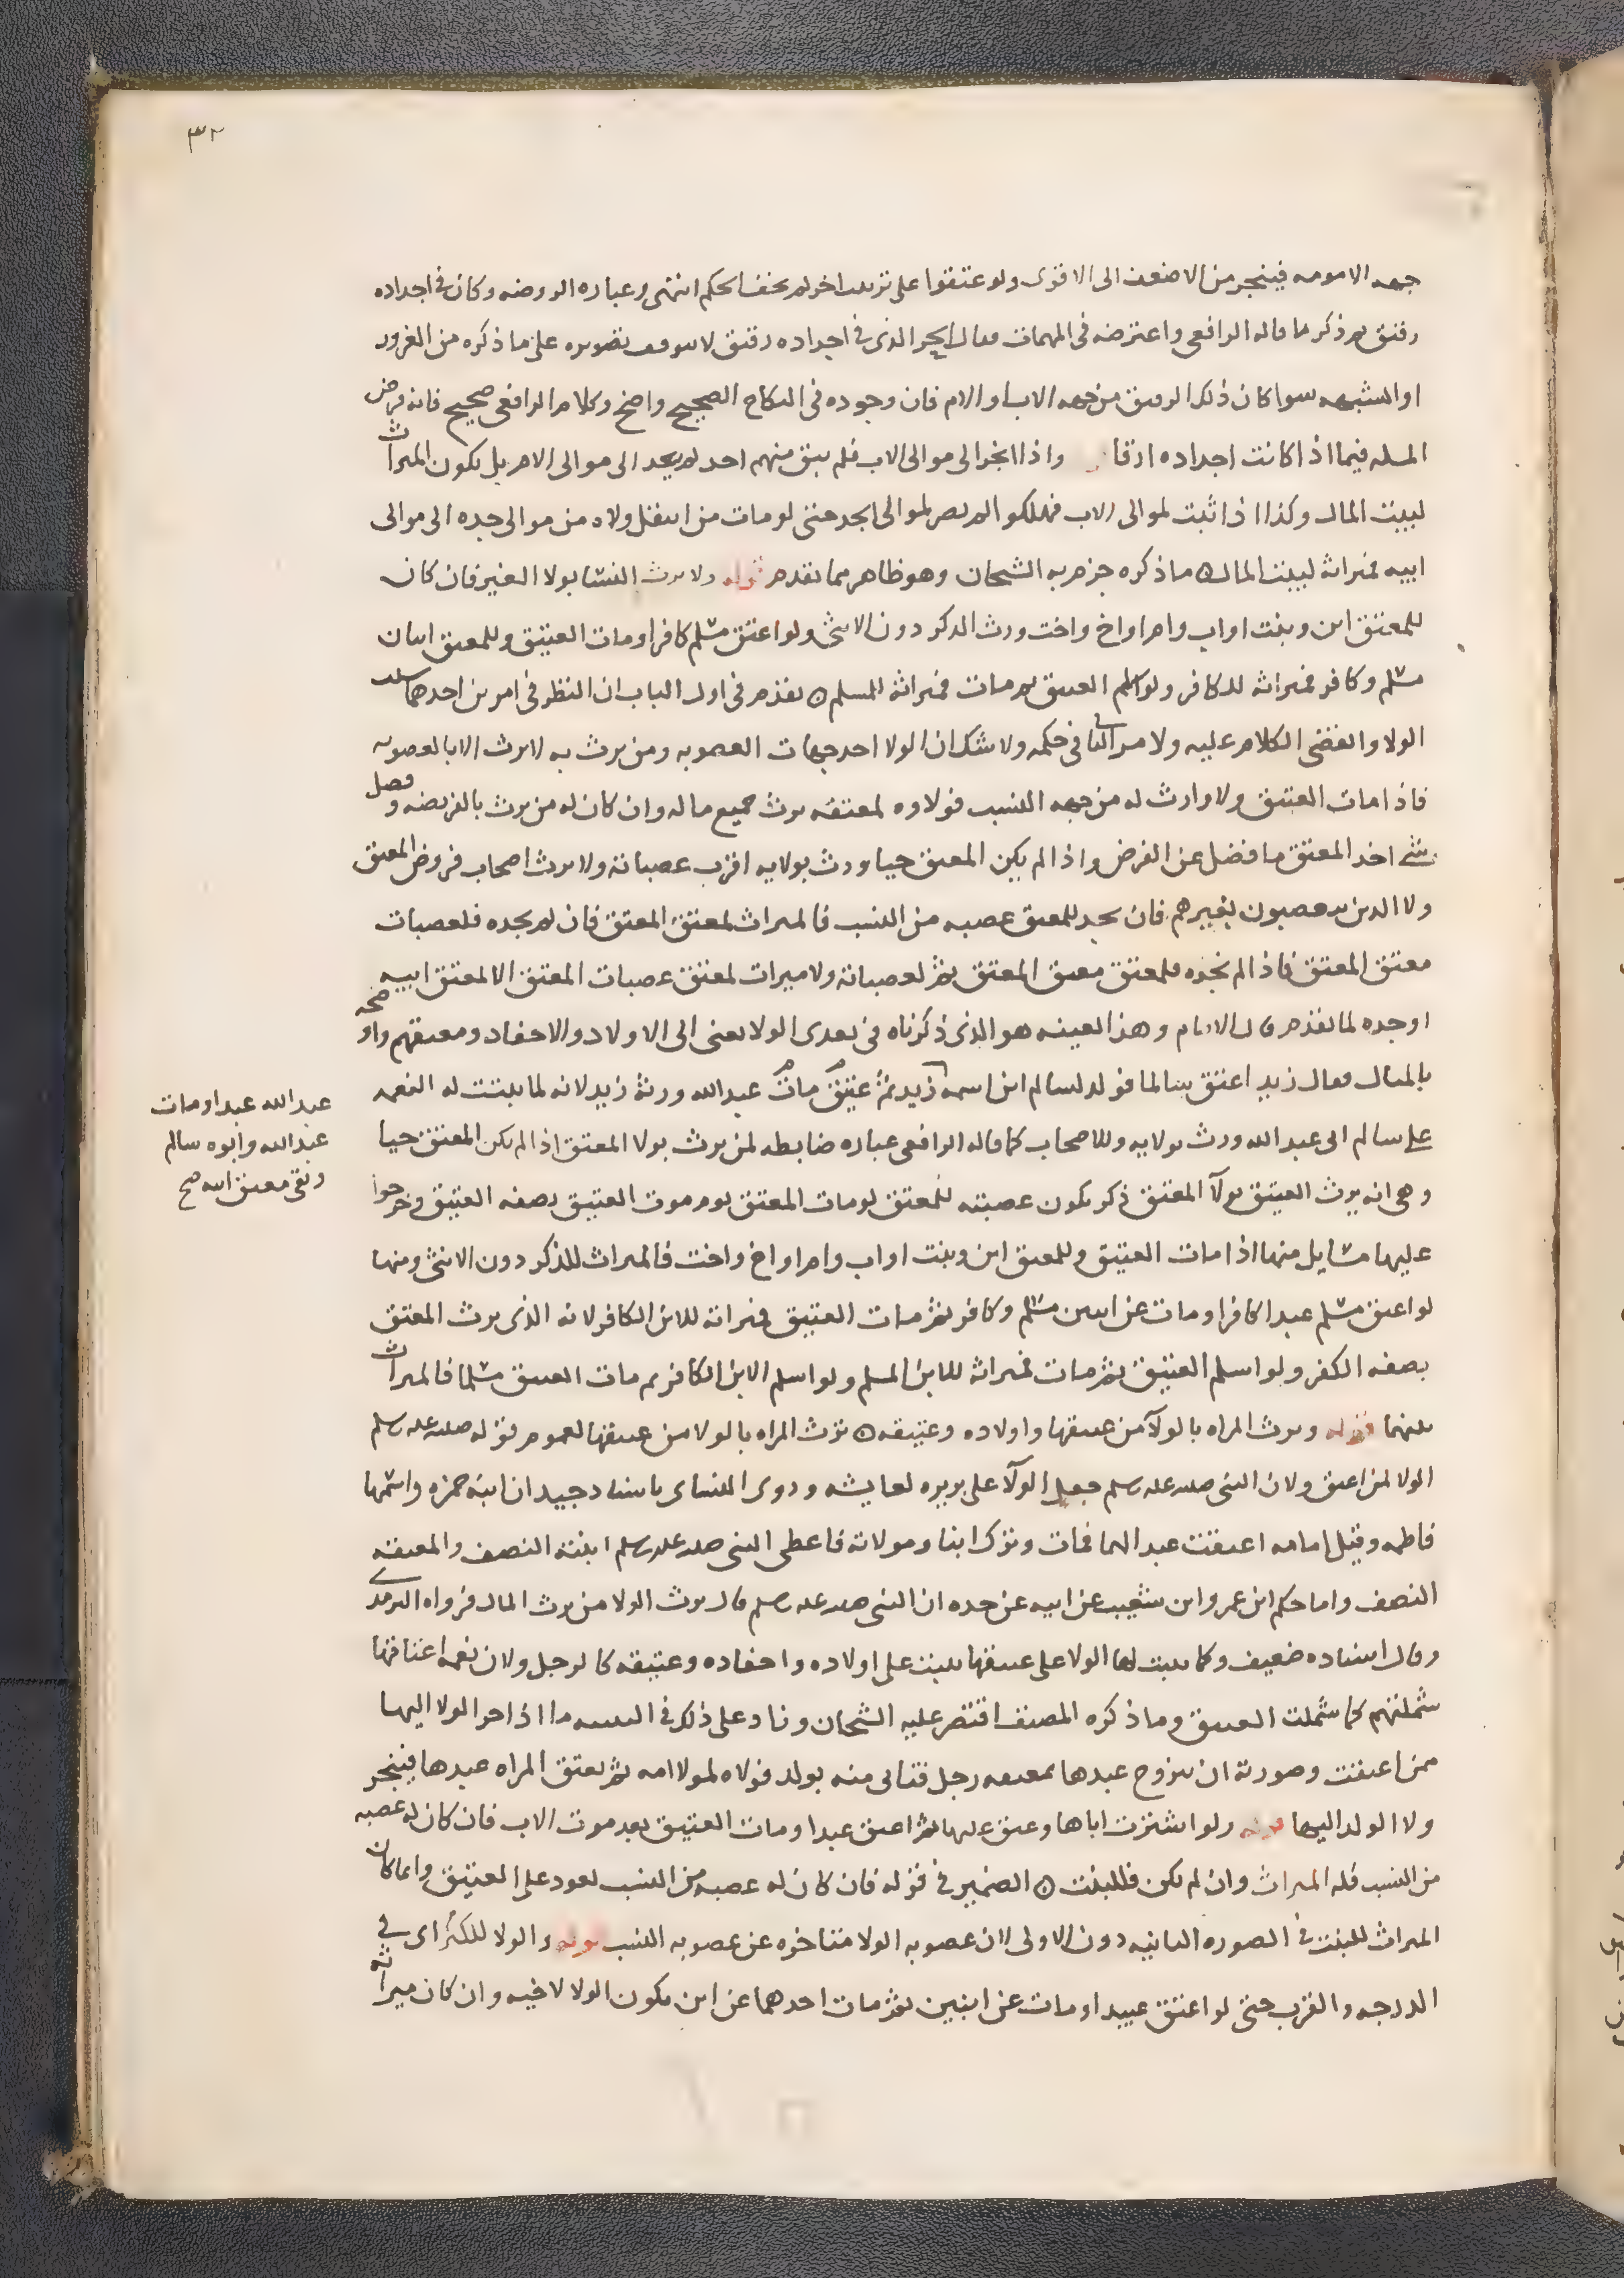 ٣٢
جهه الامومه فينجر من الاضعف الى الاقوى ولو عتقوا على ترتيب اخر لم يخف الحكم انتهى وعباره الروضه وكان في اجداده
رقيق ثم ذكر ما قاله الرافعي واعترضه في المهمات فقال الجر الذى في اجداده رقيق لا يتوقف تصويره على ما ذكره من الغرور
او الشبهه سوا كان ذلك الرقيق من جهه الاب او الام فان وجوده في النكاح الصحيح واضح وكلام الرافعي صحيح فانه فرض
المسله فيما اذا كانت اجداده ارقا واذا انجر الى موالى الاب فلم يبق منهم احد لم يعد الى موالى الام بل يكون الميراث
لبيت المال وكذا اذا ثبت لموالى الاب فهلكوا لم يصر لموالى الجد حتى لو مات من انتقل ولاه من موالى جده الى موالى
ابيه فميراثه لبيت المال ه ما ذكره جزم به الشيخان وهو ظاهر مما تقدم قوله ولا يرث النسا بولا الغير فان كان
للمعتق ابن وبنت او اب وام او اخ واخت ورث الذكر دون الانثى ولو اعتق مسلم كافرا ومات العتيق وللمعتق ابنان
مسلم وكافر فميراثه للكافر ولو اسلم العتيق ثم مات فميراثه للمسلم ه تقدم في اول الباب ان النظر في امرين احدهما سبب
الولا وانقضى الكلام عليه ولا مر الثاني في حكمه ولا شك ان الولا احد جهات العصوبه ومن يرث به لا يرث الا بالعصوبه
فاذا مات العتيق ولا وارث له من جهه النسب فولاوه لمعتقه يرث جميع ماله وان كان له من يرث بالفريضه وفضل
شي اخذ المعتق ما فضل عن الفرض واذا لم يكن المعتق حيا ورث بولايه اقرب عصباته ولا يرث اصحاب فروض المعتق
ولا الذين يتعصبون بغيرهم فان لم نجد للمعتق عصبه من النسب فالميراث لمعتق المعتق فان لم نجده فلعصبات
معتق المعتق فاذا لم نجده فلمعتق معتق المعتق ثم لعصباته ولا ميراث لمعتق عصبات المعتق الا لمعتق ابيه
او جده لما تقدم قال الامام وهذا لعينه هو الذى ذكرناه في تعدى الولا يعنى الى الاولاد والاحفاد ومعتقهم واوضحه
بالمثال فقال زيد اعتق سالما فولد لسالم ابن اسمه زيد ثم عتيق مات عبدالله ورثه زيد لانه لما ثبتت له النعمه
على سالم الى عبد الله ورث بولايه وللاصحاب كما قاله الرافعي عباره ضابطه لمن يرث بولا المعتق اذا لم يكن المعتق حيا
وهي انه يرث العتيق بولآ المعتق ذكر يكون عصبته للمعتق لو مات المعتق يوم موت العتيق بصفه العتيق وخرجوا
عليها مسايل منها اذا مات العتيق وللمعتق ابن وبنت او اب وام او اخ واخت فالميراث للذكر دون الانثى ومنها
لو اعتق مسلم عبدا كافرا ومات عن ابنين مسلم وكافر ثم مات العتيق فميراثه للابن الكافر لانه الذى يرث المعتق
بصفه الكفر ولو اسلم العتيق ثم مات فميراثه للابن المسلم ولو اسلم الابن الكافر ثم مات العتيق مسلما فالميراث
بينهما قوله وترث المراه بالولآ من عتيقها واولاده وعتيقه ه ترث المراه بالولا من عتيقها لعموم قوله صلى الله عليه وسلم
الولا لمن اعتق ولان النبي صلى الله عليه وسلم جعل الولآ على بريره لعايشه وروى النساى باسناد جيد ان ابنه حمزه واسمها
فاطمه وقيل امامه اعتقت عبدا لها فمات وترك ابنتا ومولاته فاعطى النبي صلى الله عليه وسلم ابنته النصف والمعتقه
النصف واما حكم ابن عمرو ابن شعيب عن ابيه عن جده ان النبي صلى الله عليه وسلم قال يرث الولا من يرث المال فرواه الترمذي
وقال اسناده ضعيف وكما يثبت لها الولا على عتيقها يثبت على اولاده واحفاده وعتيقه كالرجل ولان نعمه اعتاقها
شملتهم كما شملت العتيق وما ذكره المصنف اقتصر عليه الشيخان وزاد على ذلك في التنبيه ما اذا جر الولا اليها
ممن اعتقت وصورته ان تزوج عبدها بمعتقه رجل فتاتى منه بولد فولاه لمولا امه ثم تعتق المراه عبدها فينجر
ولا الولد اليها قوله ولو اشترت اباها وعتق عليها ثم اعتق عبدا ومات العتيق بعد موت الاب فان كان له عصبه
من النسب فله الميراث وان لم يكن فللبنت ه الضمير في قوله فان كان له عصبه من النسب يعود على العتيق وانما كان
الميراث للبنت في الصوره الثانيه دون الاولى لان عصوبه الولا متاخره عن عصوبه النسب قوله والولا للكبراى في
الدرجه والقرب حتى لو اعتق عبيدا ومات عن ابنين ثم مات احدهما عن ابن يكون الولا لاخيه وان كان ميراثه
عبد الله عبدا ومات
عبدالله وابوه سالم
وبقى معتق ابيه صح